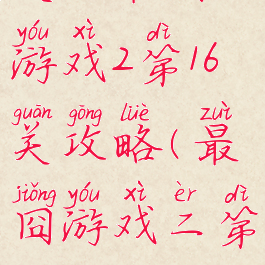 yóu xì dì
游戏2第16
guān gōng lüè zuì
关攻略(最
jiǒng yóu xì èr dì
囧游戏二第